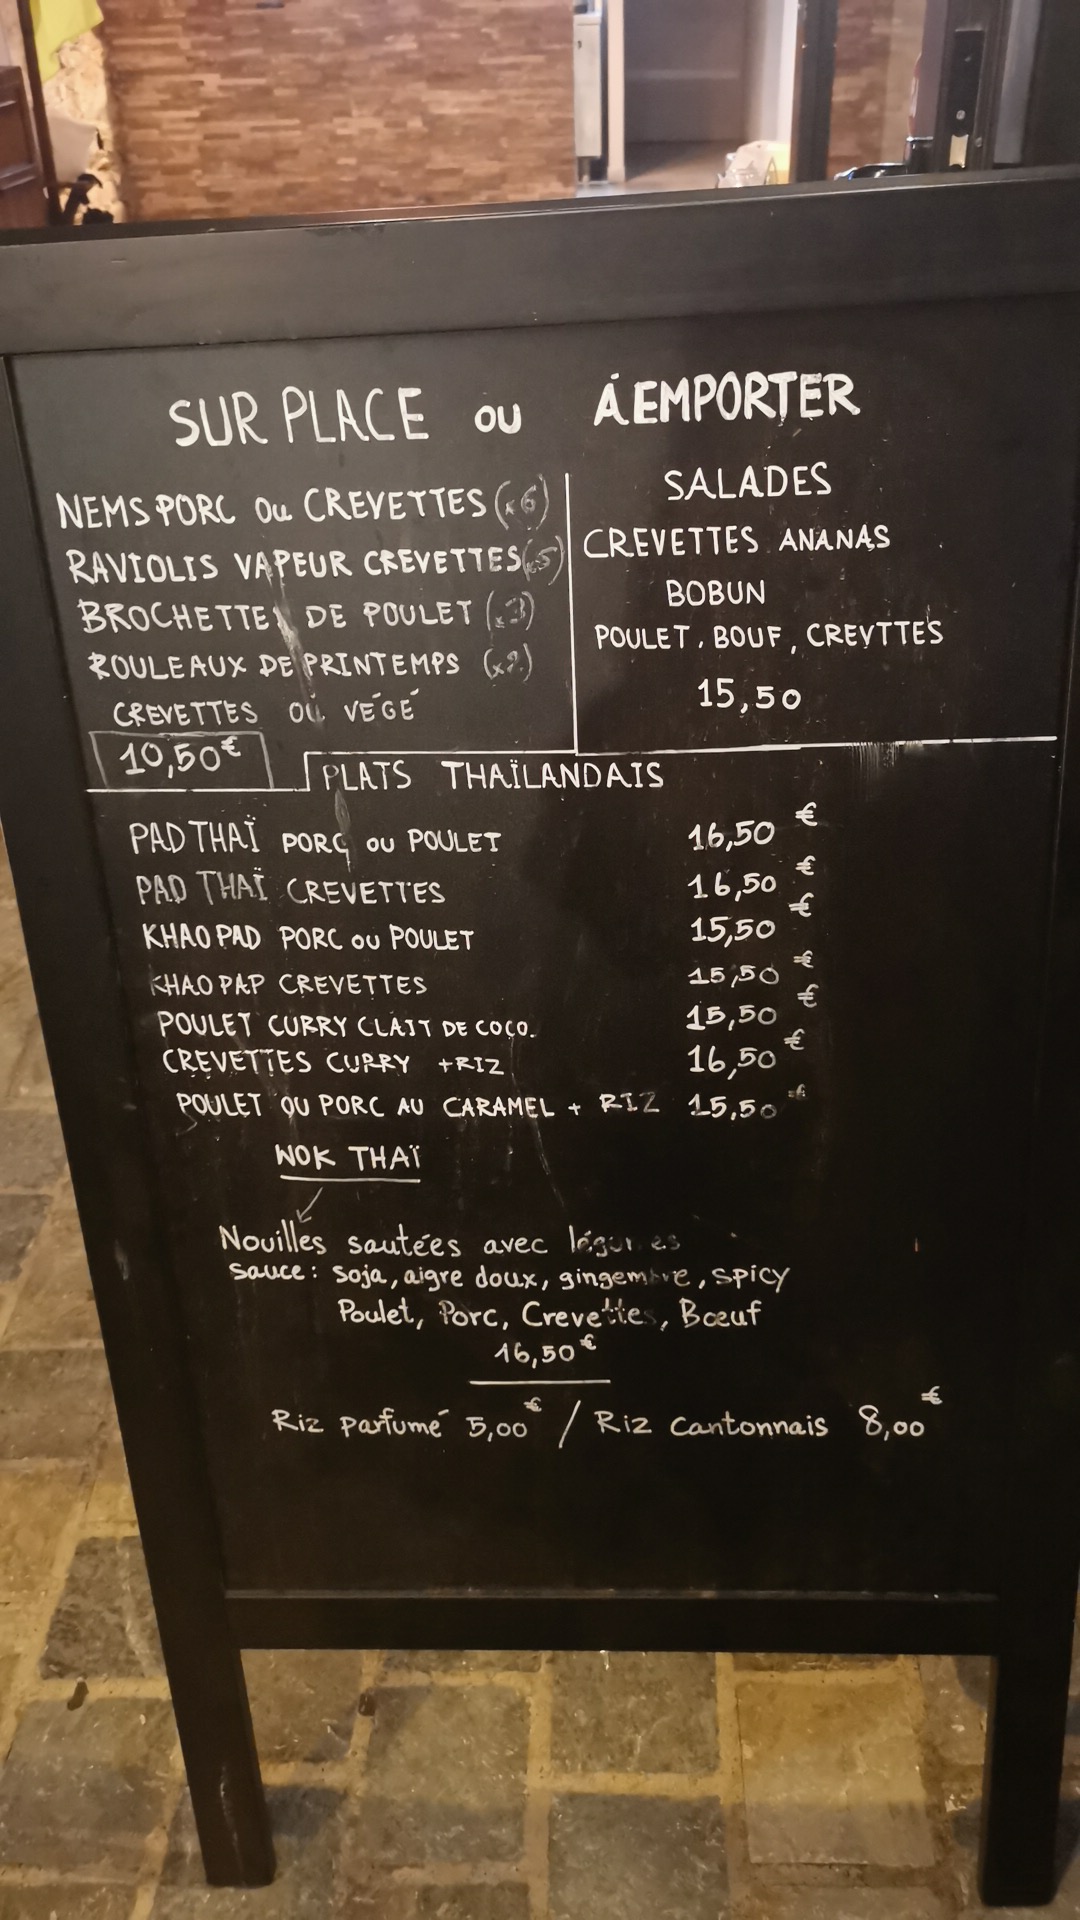 SUR PLACE OU À EMPORTER
NEMS PORC OU CREVETTES (x6)
RAVIOLIS VAPEUR CREVETTES (x5)
BROCHETTES DE POULET (x3)
ROULEAUX DE PRINTEMPS (x2)
CREVETTES OU VÉGÉ
10,50€
SALADES
CREVETTES ANANAS
BOBUN
POULET, BOUF, CREVTTES
15,50
PLATS THAÏLANDAIS
PAD THAÏ PORC OU POULET 16,50 €
PAD THAÏ CREVETTES 16,50 €
KHAO PAD PORC OU POULET 15,50 €
KHAO PAP CREVETTES 15,50 €
POULET CURRY CLAIT DE COCO. 15,50 €
CREVETTES CURRY +RIZ 16,50 €
POULET OU PORC AU CARAMEL + RIZ 15,50 €
WOK THAÏ
Nouilles sautées avec légumes
sauce : soja, aigre doux, gingembre, spicy
Poulet, Porc, Crevettes, Bœuf
16,50€
Riz parfumé 5,00€ / Riz Cantonnais 8,00€